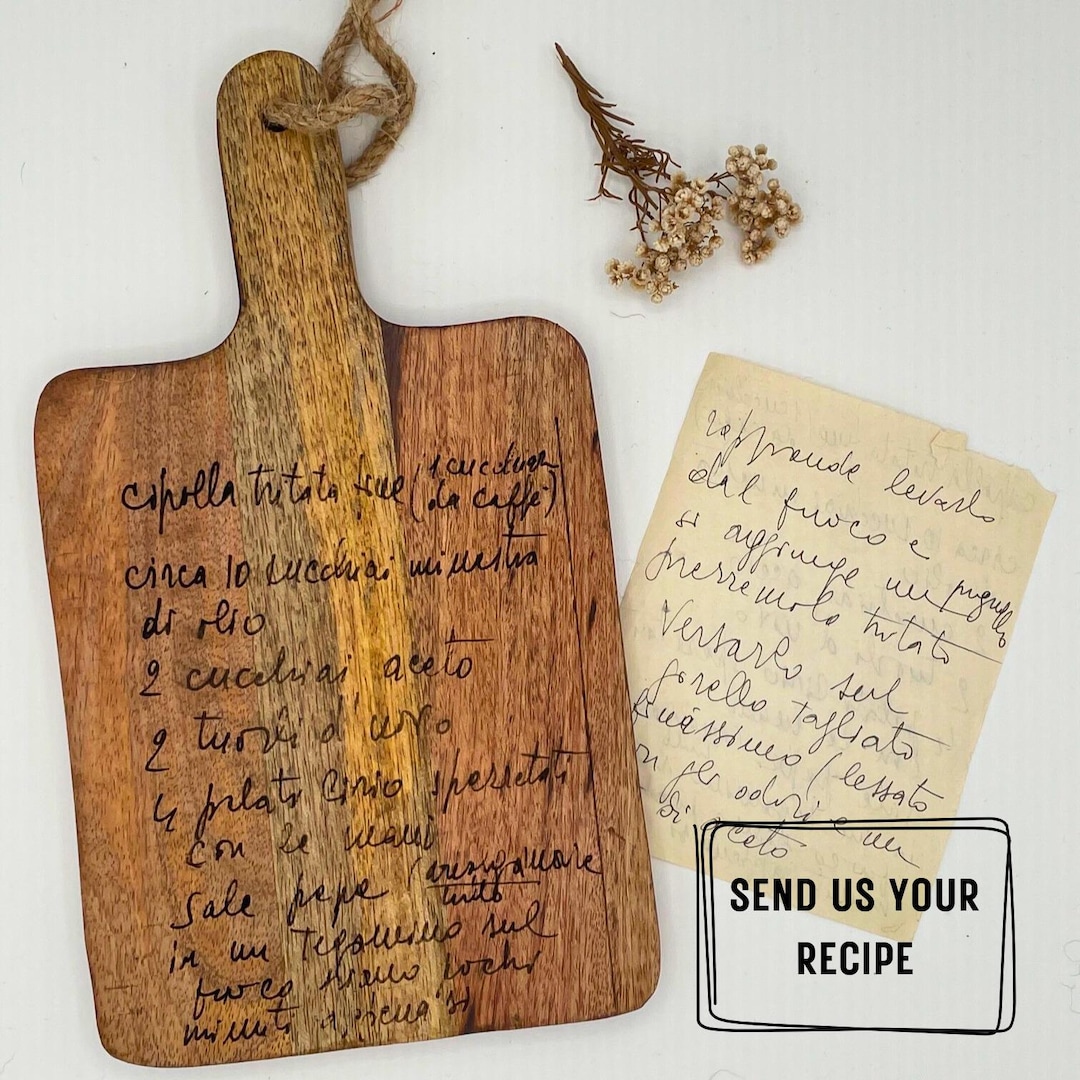 cipolla tritata fine (1 cucchiaio
da caffè)
circa 10 cucchiai minestra
di olio
2 cucchiai aceto
2 tuorli d'uovo
4 pelati Cirio spezzetati
con le mani
Sale pepe
tutto
in un tegamino sul
fuoco pochi
minuti appena si
rapprende levarlo
dal fuoco e
si aggiunge un pugnello
prezzemolo tritato
Versarlo sul
girello tagliato
finissimo (lessato
gli odori e un
di aceto
SEND US YOUR
RECIPE